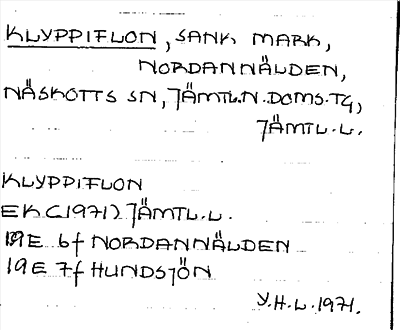 KLYPPIFLON, SANK MARK,
NORDANNÄLDEN,
NÄSKOTTS SN, JÄMTL.N.DOMS.TG,
JÄMTL.L.
KLYPPIFLON
EK (1971) JÄMTL.L.
19E 6f NORDANNÄLDEN
19E 7f HUNDSJÖN
Y.H.L.1971.